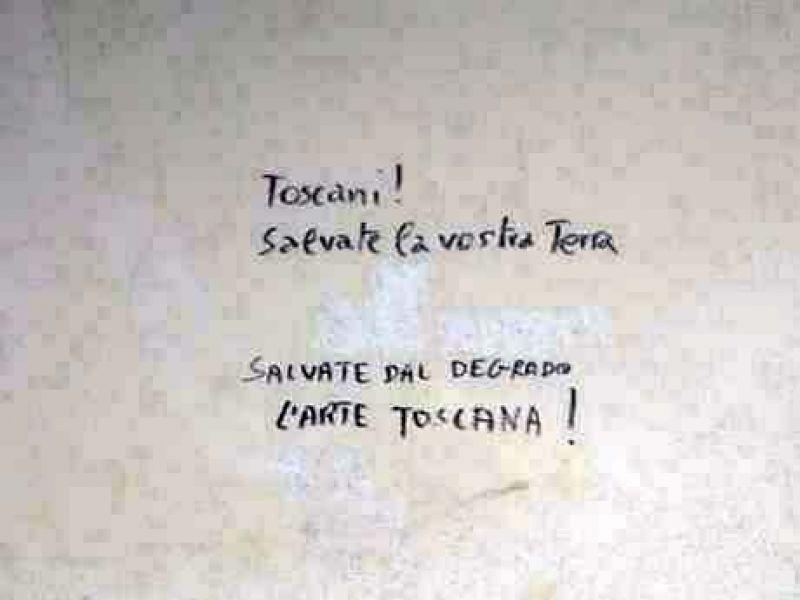 Toscani!
Salvate la vostra Terra
SALVATE DAL DEGRADO
L'ARTE TOSCANA!